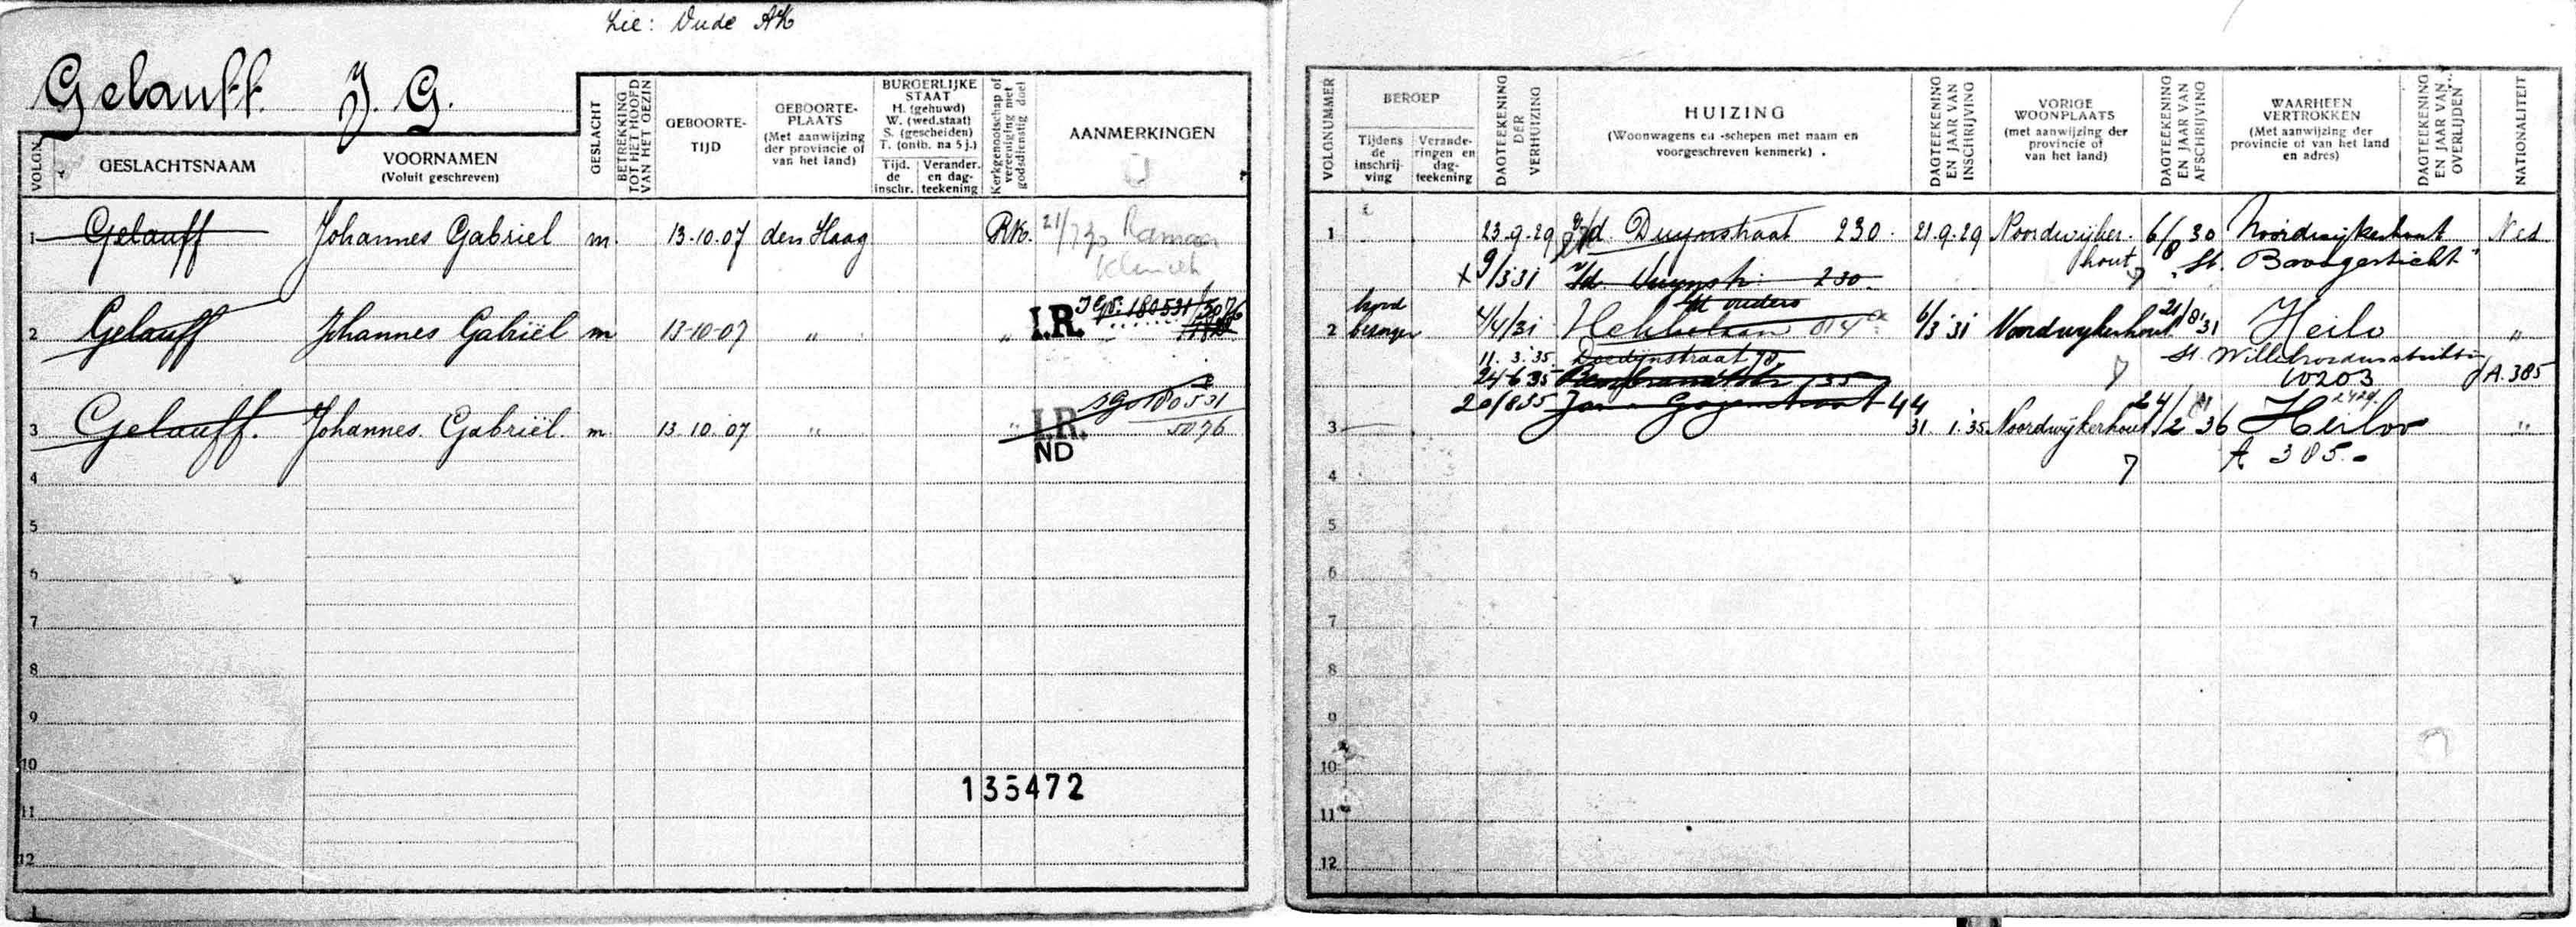 Zie: Oude AK
Gelauff J. G.
VOLGN.
GESLACHTSNAAM
VOORNAMEN
(Voluit geschreven)
GESLACHT
BETREKKING TOT HET HOOFD VAN HET GEZIN
GEBOORTE-
TIJD
GEBOORTE-
PLAATS
(Met aanwijzing
der provincie of
van het land)
BURGERLIJKE
STAAT
H. (gehuwd)
W. (wed.staat)
S. (gescheiden)
T. (ontb. na 5 j.)
Tijd.
de
inschr.
Verander.
en dag-
teekening
Kerkgenootschap of vereeniging met godsdienstig doel
AANMERKINGEN
1 Gelauff Johannes Gabriel m. 13-10-07 den Haag RK. 21/7 30 Ramaer
Kliniek
2 Gelauff Johannes Gabriël m 13-10-07 " " I.R. 180531/5076
3 Gelauff. Johannes Gabriël. m. 13.10.07 " " I.R. 180531
5076
ND
4
5
6
7
8
9
10
135472
11
12
VOLGNUMMER
BEROEP
Tijdens
de
inschrij-
ving
Verande-
ringen en
dag-
teekening
DAGTEEKENING DER VERHUIZING
HUIZING
(Woonwagens en -schepen met naam en
voorgeschreven kenmerk)
DAGTEEKENING EN JAAR VAN INSCHRIJVING
VORIGE
WOONPLAATS
(met aanwijzing der
provincie of
van het land)
DAGTEEKENING EN JAAR VAN AFSCHRIJVING
WAARHEEN
VERTROKKEN
(Met aanwijzing der
provincie of van het land
en adres)
DAGTEEKENING EN JAAR VAN OVERLIJDEN
NATIONALITEIT
1 23.9.29 v/d. Duynstraat 230. 21.9.29 Noordwijker- 6/8 30 Noordwijkerhout Ned
hout St. Bavogesticht
x 9/3 31 v/d. Duynstr. 230.
ouders
2 4/4/31 814 6/3 31 Noordwijkerhout 21/8 31 Heilo "
11.3.35 Doedijnstraat 78 St. Willebrordusstichting
24-6 35 135 10203 A.385
20/8 35 Jan Gozenstraat 44
3 31.1.35 Noordwijkerhout 24/2 36 Heiloo "
7 A 385.
4
5
6
7
8
9
10
11
12